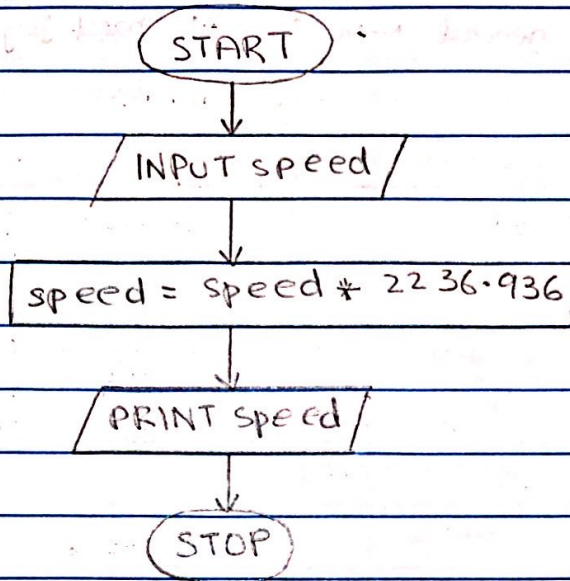 START
INPUT speed
speed = speed * 2236.936
PRINT speed
STOP